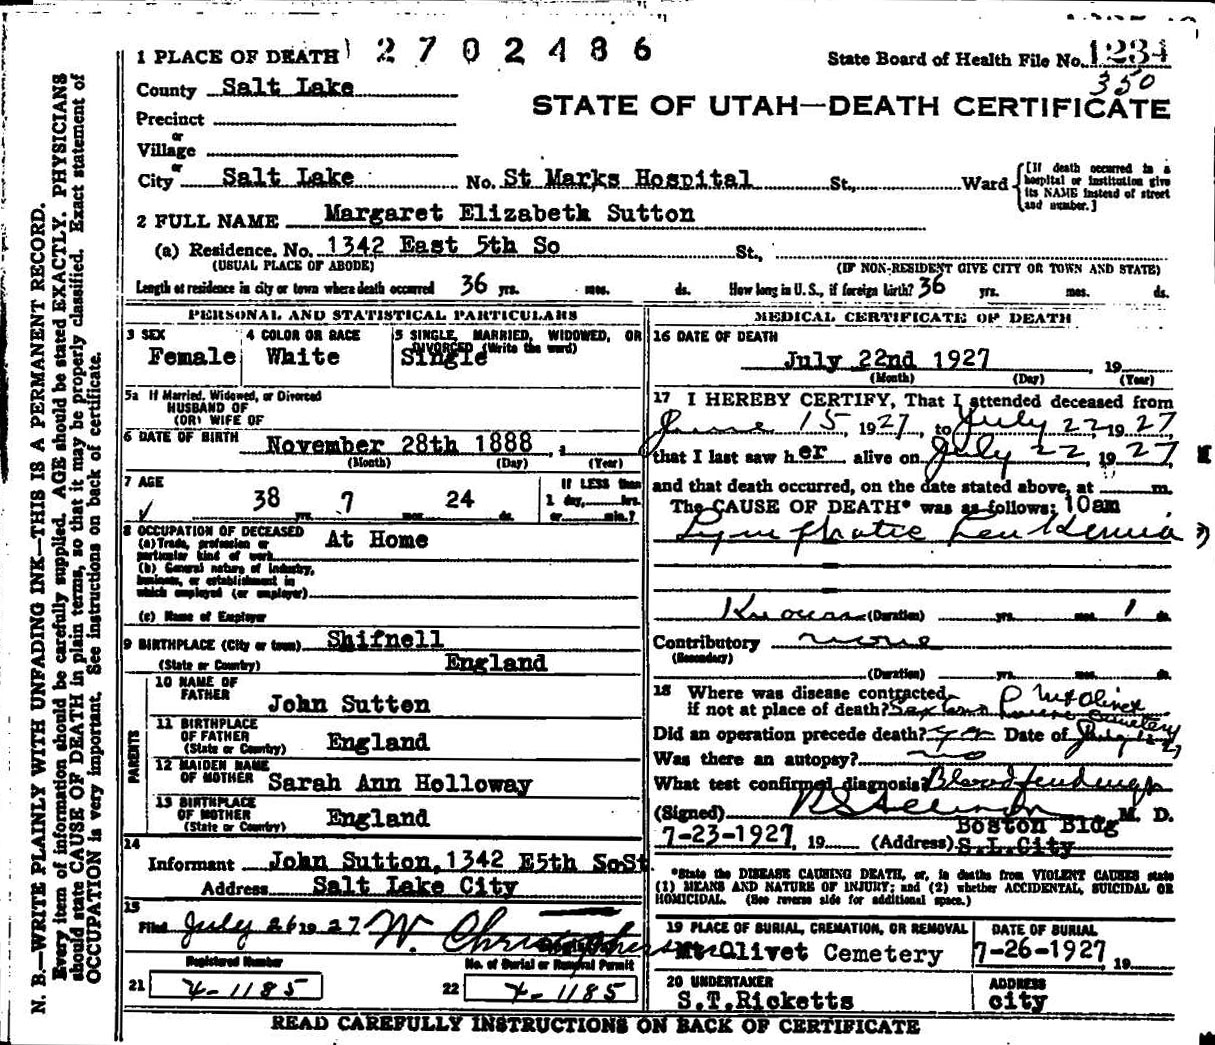 1 PLACE OF DEATH 2702486
State Board of Health File No. 1234
350
County Salt Lake
STATE OF UTAH—DEATH CERTIFICATE
Precinct
or
Village
or
City Salt Lake No. St Marks Hospital St., Ward
[If death occurred in a hospital or institution give its NAME instead of street and number.]
2 FULL NAME Margaret Elizabeth Sutton
(a) Residence. No. 1342 East 5th So St.,
(USUAL PLACE OF ABODE) (IF NON-RESIDENT GIVE CITY OR TOWN AND STATE)
Length of residence in city or town where death occurred 36 yrs. mos. ds. How long in U. S., if foreign birth? 36 yrs. mos. ds.
PERSONAL AND STATISTICAL PARTICULARS
3 SEX 4 COLOR OR RACE 5 SINGLE, MARRIED, WIDOWED, OR DIVORCED (Write the word)
Female White Single
5a If Married, Widowed, or Divorced
HUSBAND OF
(OR) WIFE OF
6 DATE OF BIRTH November 28th 1888
(Month) (Day) (Year)
7 AGE 38 yrs. 7 mos. 24 ds.
IF LESS than 1 day, hrs. or min.?
8 OCCUPATION OF DECEASED At Home
(a) Trade, profession or particular kind of work
(b) General nature of industry, business, or establishment in which employed (or employer)
(c) Name of Employer
9 BIRTHPLACE (City or town) Shifnell
(State or Country) England
PARENTS
10 NAME OF FATHER John Sutton
11 BIRTHPLACE OF FATHER (State or Country) England
12 MAIDEN NAME OF MOTHER Sarah Ann Holloway
13 BIRTHPLACE OF MOTHER (State or Country) England
14
Informant John Sutton, 1342 E5th So St
Address Salt Lake City
15
Filed July 26 1927 W. Christopherson
Registered Number No. of Burial or Removal Permit
21 4-1185 22 4-1185
MEDICAL CERTIFICATE OF DEATH
16 DATE OF DEATH
July 22nd 1927, 19
(Month) (Day) (Year)
17 I HEREBY CERTIFY, That I attended deceased from
June 15, 1927, to July 22, 1927
that I last saw her alive on July 22, 1927,
and that death occurred, on the date stated above, at m.
The CAUSE OF DEATH* was as follows: 10am
Lymphatic Leukemia
Known (Duration) yrs. mos. 1 ds.
Contributory none
(Secondary)
(Duration) yrs. mos. ds.
18 Where was disease contracted
if not at place of death?
Did an operation precede death? Date of
Was there an autopsy? no
What test confirmed diagnosis? Blood findings
(Signed) M. D.
7-23-1927, 19 (Address) Boston Bldg
S.L.City
*State the DISEASE CAUSING DEATH, or, in deaths from VIOLENT CAUSES state
(1) MEANS AND NATURE OF INJURY; and (2) whether ACCIDENTAL, SUICIDAL OR
HOMICIDAL. (See reverse side for additional space.)
19 PLACE OF BURIAL, CREMATION, OR REMOVAL DATE OF BURIAL
Mt Olivet Cemetery 7-26-1927, 19
20 UNDERTAKER ADDRESS
S.T.Ricketts city
READ CAREFULLY INSTRUCTIONS ON BACK OF CERTIFICATE
N. B.—WRITE PLAINLY WITH UNFADING INK—THIS IS A PERMANENT RECORD.
Every item of information should be carefully supplied. AGE should be stated EXACTLY. PHYSICIANS
should state CAUSE OF DEATH in plain terms, so that it may be properly classified. Exact statement of
OCCUPATION is very important. See instructions on back of certificate.